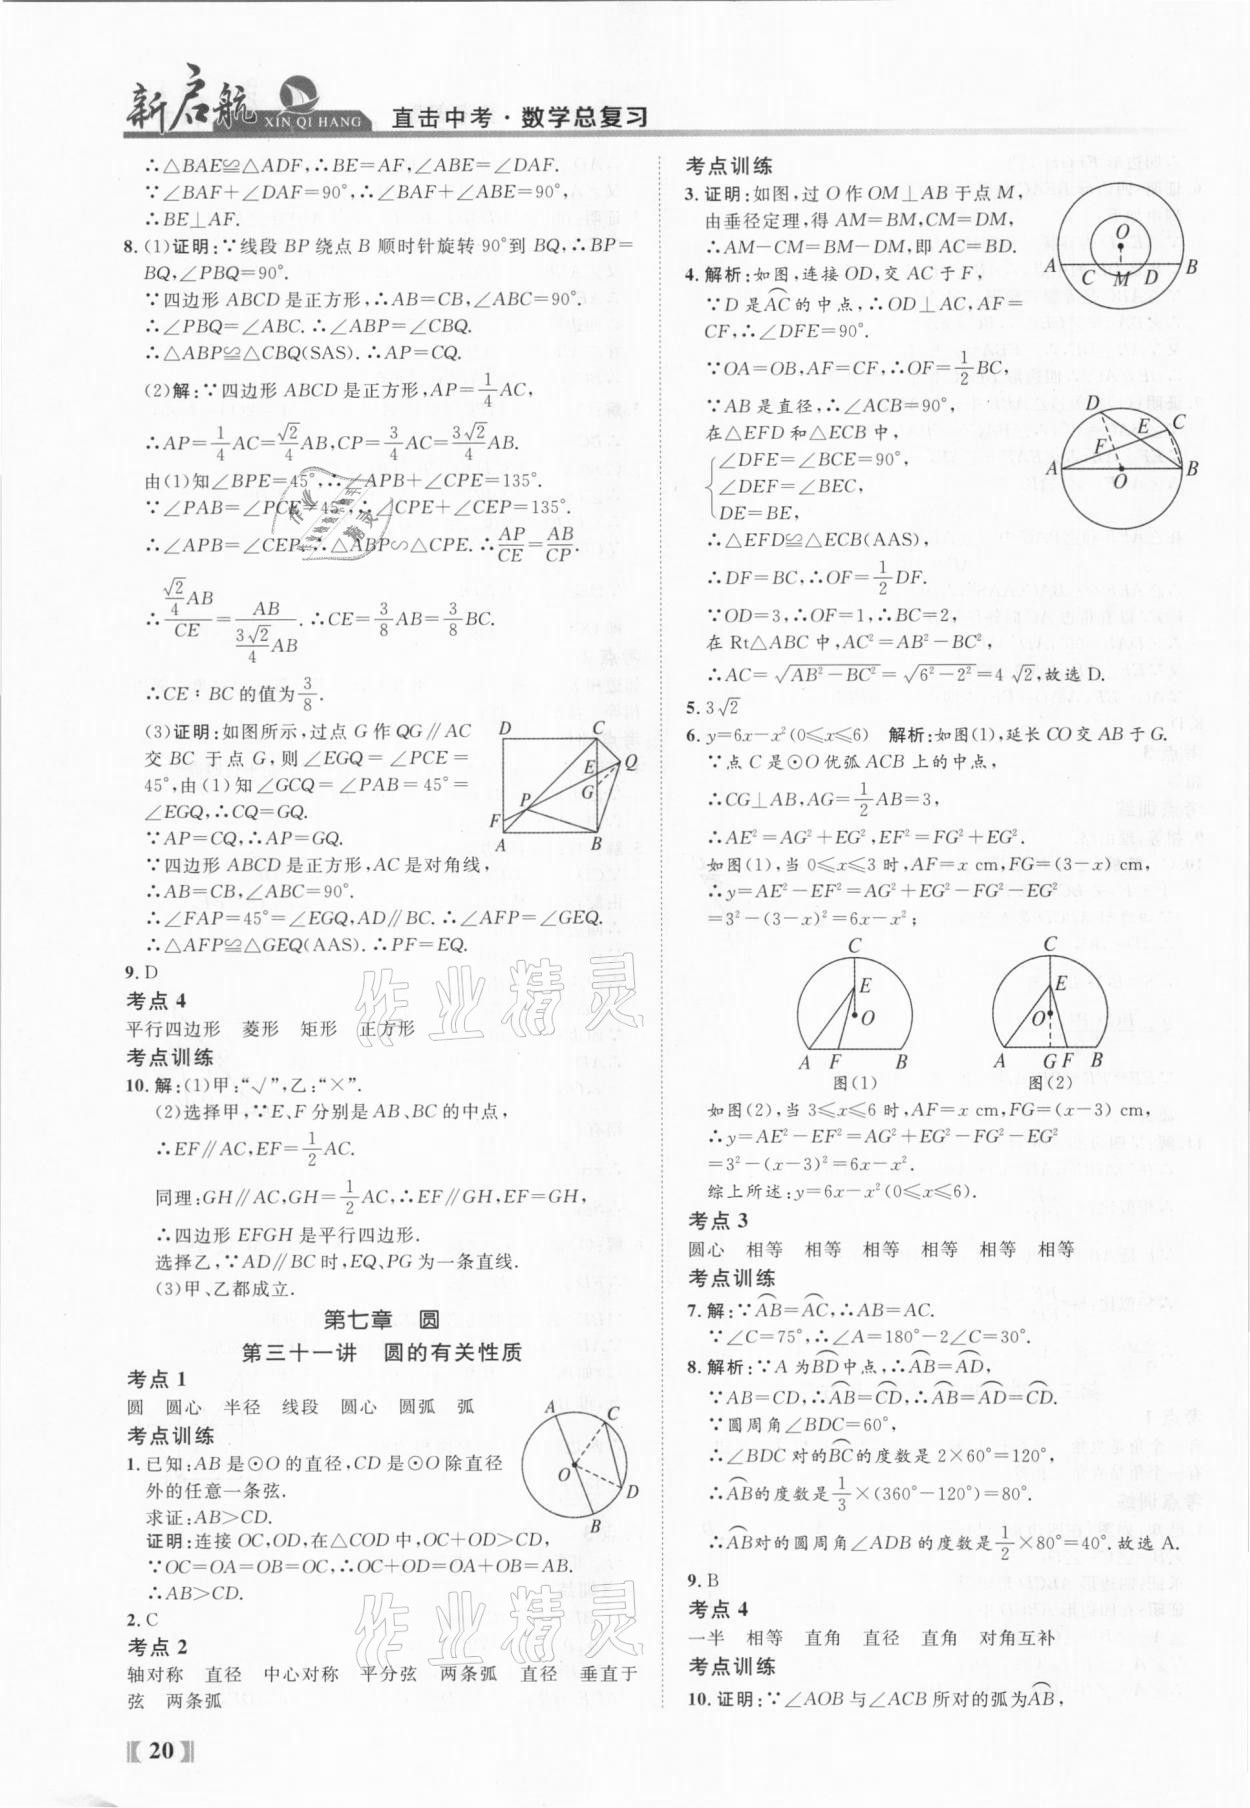 新启航
XIN QI HANG
直击中考·数学总复习
∴△BAE≌△ADF,∴BE=AF,∠ABE=∠DAF.
∵∠BAF+∠DAF=90°,∴∠BAF+∠ABE=90°,
∴BE⊥AF.
8. (1)证明:∵线段 BP 绕点 B 顺时针旋转 90°到 BQ,∴BP=
BQ,∠PBQ=90°.
∵四边形 ABCD 是正方形,∴AB=CB,∠ABC=90°.
∴∠PBQ=∠ABC.∴∠ABP=∠CBQ.
∴△ABP≌△CBQ(SAS).∴AP=CQ.
(2)解:∵四边形 ABCD 是正方形,AP=1/4 AC,
∴AP=1/4 AC=√2/4 AB,CP=3/4 AC=3√2/4 AB.
由(1)知∠BPE=45°,∴∠APB+∠CPE=135°.
∵∠PAB=∠PCE=45°,∴∠CPE+∠CEP=135°.
∴∠APB=∠CEP.∴△ABP∽△CPE.∴AP/CE=AB/CP.
∴(√2/4 AB)/CE=AB/(3√2/4 AB).∴CE=3/8 AB=3/8 BC.
∴CE∶BC 的值为 3/8.
(3)证明:如图所示,过点 G 作 QG∥AC
交 BC 于点 G,则∠EGQ=∠PCE=
45°,由(1)知∠GCQ=∠PAB=45°=
∠EGQ,∴CQ=GQ.
∵AP=CQ,∴AP=GQ.
∵四边形 ABCD 是正方形,AC 是对角线,
∴AB=CB,∠ABC=90°.
∴∠FAP=45°=∠EGQ,AD∥BC.∴∠AFP=∠GEQ.
∴△AFP≌△GEQ(AAS).∴PF=EQ.
D C E Q G P F A B
9. D
考点 4
平行四边形 菱形 矩形 正方形
考点训练
10. 解:(1)甲:“√”,乙:“×”.
(2)选择甲,∵E、F 分别是 AB、BC 的中点,
∴EF∥AC,EF=1/2 AC.
同理:GH∥AC,GH=1/2 AC,∴EF∥GH,EF=GH,
∴四边形 EFGH 是平行四边形.
选择乙,∵AD∥BC 时,EQ、PG 为一条直线.
(3)甲、乙都成立.
第七章 圆
第三十一讲 圆的有关性质
考点 1
圆 圆心 半径 线段 圆心 圆弧 弧
考点训练
1. 已知:AB 是⊙O 的直径,CD 是⊙O 除直径
外的任意一条弦.
求证:AB>CD.
证明:连接 OC,OD,在△COD 中,OC+OD>CD,
∵OC=OA=OB=OC,∴OC+OD=OA+OB=AB.
∴AB>CD.
A C O D B
2. C
考点 2
轴对称 直径 中心对称 平分弦 两条弧 直径 垂直于
弦 两条弧
20
考点训练
3. 证明:如图,过 O 作 OM⊥AB 于点 M,
由垂径定理,得 AM=BM,CM=DM,
∴AM-CM=BM-DM,即 AC=BD.
O A C M D B
4. 解析:如图,连接 OD,交 AC 于 F,
∵D 是AC⌒的中点,∴OD⊥AC,AF=
CF,∴∠DFE=90°.
∵OA=OB,AF=CF,∴OF=1/2 BC,
∵AB 是直径,∴∠ACB=90°,
在△EFD 和△ECB 中,
{∠DFE=∠BCE=90°,
∠DEF=∠BEC,
DE=BE,
∴△EFD≌△ECB(AAS),
∴DF=BC,∴OF=1/2 DF.
∵OD=3,∴OF=1,∴BC=2,
在 Rt△ABC 中,AC²=AB²-BC²,
∴AC=√(AB²-BC²)=√(6²-2²)=4√2,故选 D.
D C E F A O B
5. 3√2
6. y=6x-x²(0≤x≤6) 解析:如图(1),延长 CO 交 AB 于 G.
∵点 C 是⊙O 优弧 ACB 上的中点,
∴CG⊥AB,AG=1/2 AB=3,
∴AE²=AG²+EG²,EF²=FG²+EG².
如图(1),当 0≤x≤3 时,AF=x cm,FG=(3-x) cm,
∴y=AE²-EF²=AG²+EG²-FG²-EG²
=3²-(3-x)²=6x-x²;
C E O A F B
图(1)
C E O A G F B
图(2)
如图(2),当 3≤x≤6 时,AF=x cm,FG=(x-3) cm,
∴y=AE²-EF²=AG²+EG²-FG²-EG²
=3²-(x-3)²=6x-x².
综上所述:y=6x-x²(0≤x≤6).
考点 3
圆心 相等 相等 相等 相等 相等 相等
考点训练
7. 解:∵AB⌒=AC⌒,∴AB=AC.
∵∠C=75°,∴∠A=180°-2∠C=30°.
8. 解析:∵A 为BD⌒中点,∴AB⌒=AD⌒,
∵AB=CD,∴AB⌒=CD⌒,∴AB⌒=AD⌒=CD⌒.
∵圆周角∠BDC=60°,
∴∠BDC 对的BC⌒的度数是 2×60°=120°,
∴AB⌒的度数是1/3×(360°-120°)=80°.
∴AB⌒对的圆周角∠ADB 的度数是1/2×80°=40°.故选 A.
9. B
考点 4
一半 相等 直角 直径 直角 对角互补
考点训练
10. 证明:∵∠AOB 与∠ACB 所对的弧为AB⌒,
作业精灵
作业精灵